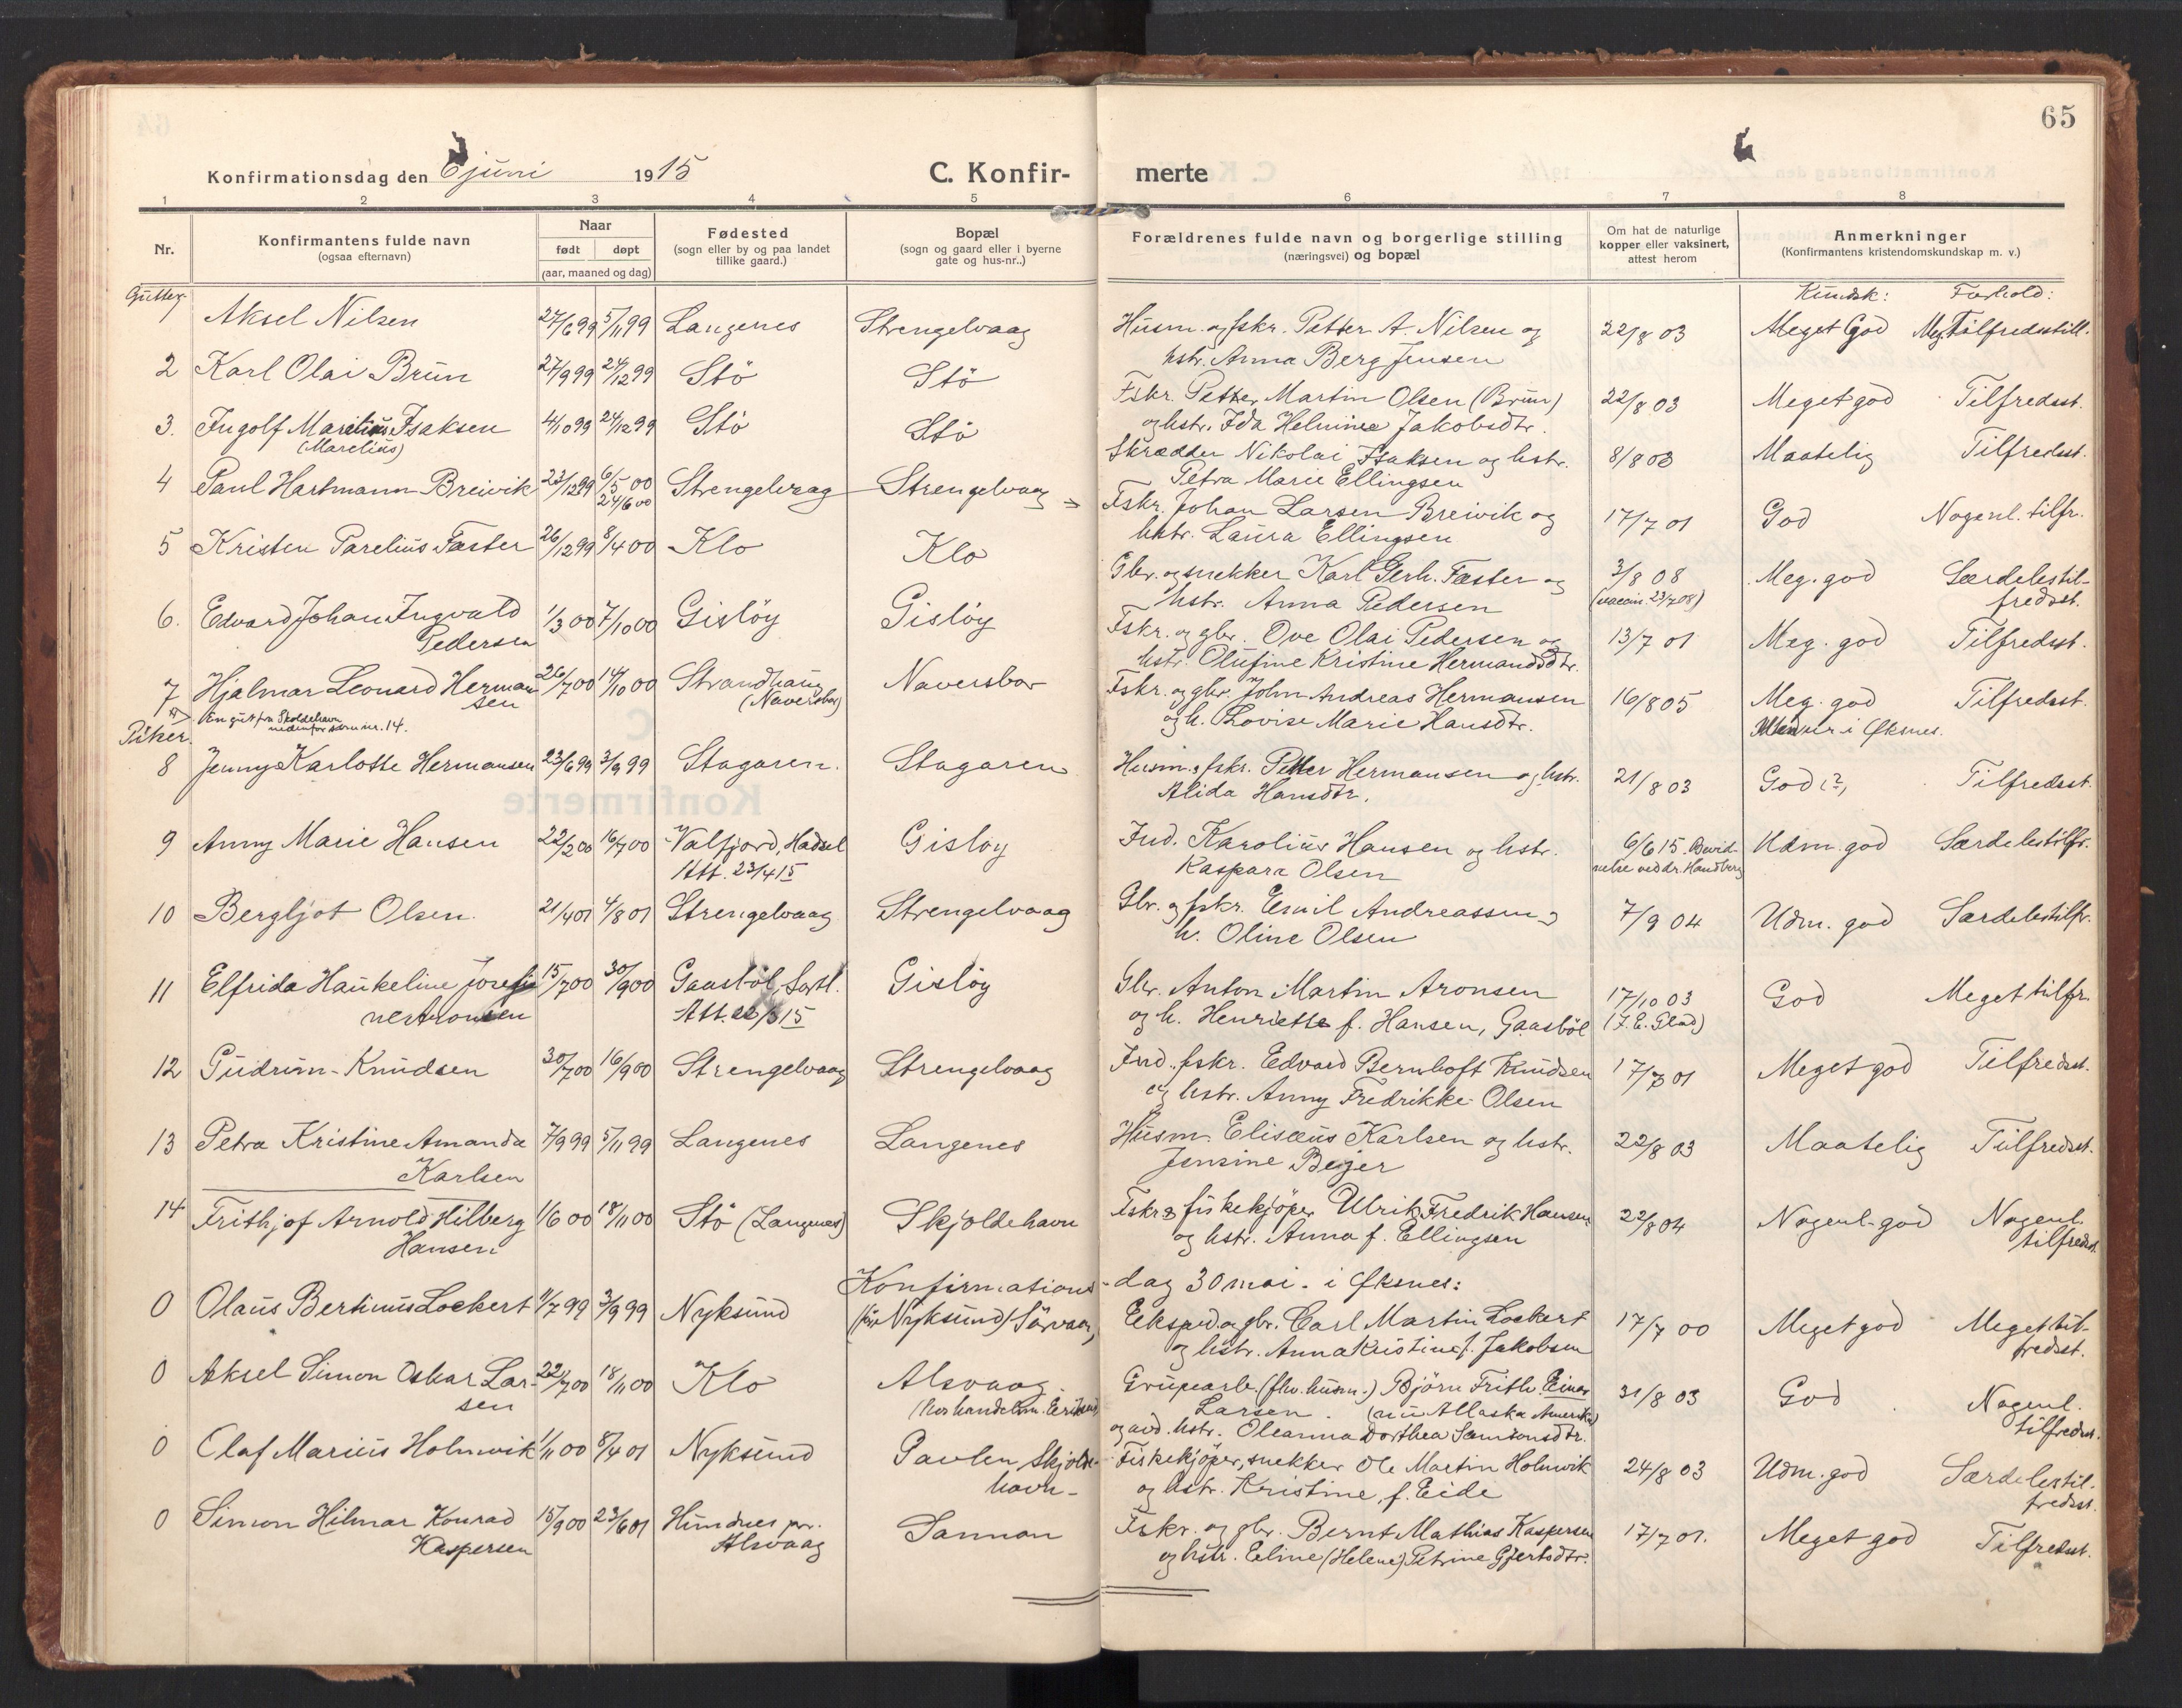 65
Konfirmationsdag den 6 juni 1915 C. Konfir- merte
1 2 3 4 5 6 7 8
Nr. Konfirmantens fulde navn (ogsaa efternavn) Naar født døpt (aar, maaned og dag) Fødested (sogn eller by og paa landet tillike gaard.) Bopæl (sogn og gaard eller i byerne gate og hus-nr..) Forældrenes fulde navn og borgerlige stilling (næringsvei) og bopæl Om hat de naturlige kopper eller vaksinert, attest herom Anmerkninger (Konfirmantens kristendomskundskap m. v.)
Gutter. Kundsk: Forhold:
1 Aksel Nilsen 27/6 99 5/11 99 Langenes Strengelvaag Husm. og fskr. Petter A. Nilsen og 22/8 03 Meget God Meg. Tilfredsstill.
hstr. Anna Berg Jensen
2 Karl Olai Brun 27/9 99 24/12 99 Stö Stö Fskr. Petter Martin Olsen (Brun) 22/8 03 Meget god Tilfredsst.
og hstr. Ida Helmine Jakobsdtr.
3. Ingolf Marelius Isaksen 4/10 99 24/12 99 Stö Stö Skrædder Nikolai Isaksen og hstr. 8/8 03 Maatelig Tilfredsst.
(Marelius) Petra Marie Ellingsen
4 Paul Hartmann Breivik 23/12 99 6/5 00 Strengelvaag Strengelvaag Fskr. Johan Larsen Breivik og 17/7 01 God Nogenl. tilfr.
24/6 00 hstr. Laura Ellingsen
5 Kristen Parelius Fæster 26/12 99 8/4 00 Klo Klo Gbr. og snekker Karl Gerh. Fæster og 3/8 08 Meg. god Særdeles til-
hstr. Anna Pedersen (vaccin. 23/7 08) fredsst.
6. Edvard Johan Ingvald 1/3 00 7/10 00 Gislöy Gislöy Fskr. og gbr. Ove Olai Pedersen og 13/7 01 Meg. god Tilfredsst.
Pedersen hstr. Olufine Kristine Hermandsdtr.
7 Hjalmar Leonard Herman 26/7 00 14/10 00 Strandhaug Naversbor Fskr. og gbr. John Andreas Hermansen 16/8 05 Meg. god Tilfredsst.
sen (Naversbor) og h. Lovise Marie Hansdtr. i Øksnes.
En gut fra Skoldehavn
nedenfor som nr. 14.
Piker.
8 Jenny Karlotte Hermansen 23/6 99 3/9 99 Stagaren. Stagaren Husm. fskr. Petter Hermansen og hstr. 21/8 03 God (?) Tilfredsst.
Alida Hansdtr.
9 Anny Marie Hansen 22/2 00 16/7 00 Valfjord, Hadsel Gisloy Ind. Karolius Hansen og hstr. 6/6 15. Bevid- Udm. god Særdeles tilfr.
Att. 23/4 15 Kaspara Olsen nelse ved dr. Handberg
10 Bergljot Olsen. 21/4 01 4/8 01 Strengelvaag Strengelvaag Gbr. og fskr. Emil Andreassen og 7/9 04 Udm. god Særdeles tilfr.
h. Oline Olsen
11 Elfrida Haukeline Josefi 15/7 00 30/9 00 Gaasböl, Sortl. Gislöy Gbr. Anton Martin Aronsen 17/10 03 God Meget tilfr.
ne Aronsen Att. 15 og h. Henriette f. Hansen, Gaasböl (J. E. Glad)
12 Gudrun Knudsen 30/7 00 16/9 00 Strengelvaag Strengelvaag Ind. fskr. Edvard Bernhoft Knudsen 17/7 01 Meget god Tilfredsst.
og hstr. Anny Fredrikke Olsen
13 Petra Kristine Amanda 7/9 99 5/11 99 Langenes Langenes Husm. Elisæus Karlsen og hstr. 22/8 03 Maatelig Tilfredsst.
Karlsen Jensine Beijer
14 Frithjof Arnold Hilberg 1/6 00 18/11 00 Stö (Langenes) Skjoldehavn Fskr. og fiskekjöper Ulrik Fredrik Hansen 22/8 04 Nogenl. god Nogenl.
Hansen og hstr. Anna f. Ellingsen tilfredsst.
Konfirmations-dag 30 mai. i Øksnes:
0 Olaus Bertinus Lockert 1/7 99 3/9 99 Nyksund (fr. Nyksund) Sörvaag Eksped. og gbr. Carl Martin Lockert 17/7 00 Meget god Meget til-
og hstr. Anna Kristine f. Jakobsen fredsst.
0 Aksel Simon Oskar Lar- 22/7 00 18/11 00 Klo Alsvaag Grupearb. (fhv. husm.) Björn Frith. Einar 31/8 03 God Nogenl.
sen (hos handelsm. Eriksen) Larsen. (nu Allaska Amerika) tilfredsst.
og avd. hstr. Oleanna Dorthea Samsonsdtr.
0 Olaf Marius Holmvik 1/11 00 8/4 01 Nyksund Pavlen Skjolde- Fiskekjöper, snekker Ole Martin Holmvik 24/8 03 Udm. god Særdeles til-
havn og hstr. Kristine f. Eide fredsst.
0 Simon Hilmar Konrad 15/9 00 23/6 01 Hundnes pr. Sannan Fskr. og gbr. Bernt Mathias Kaspersen 17/7 01. Meget god Tilfredsst.
Kaspersen Alsvaag og hstr. Eeline (Helene) Petrine Gjertsdtr.